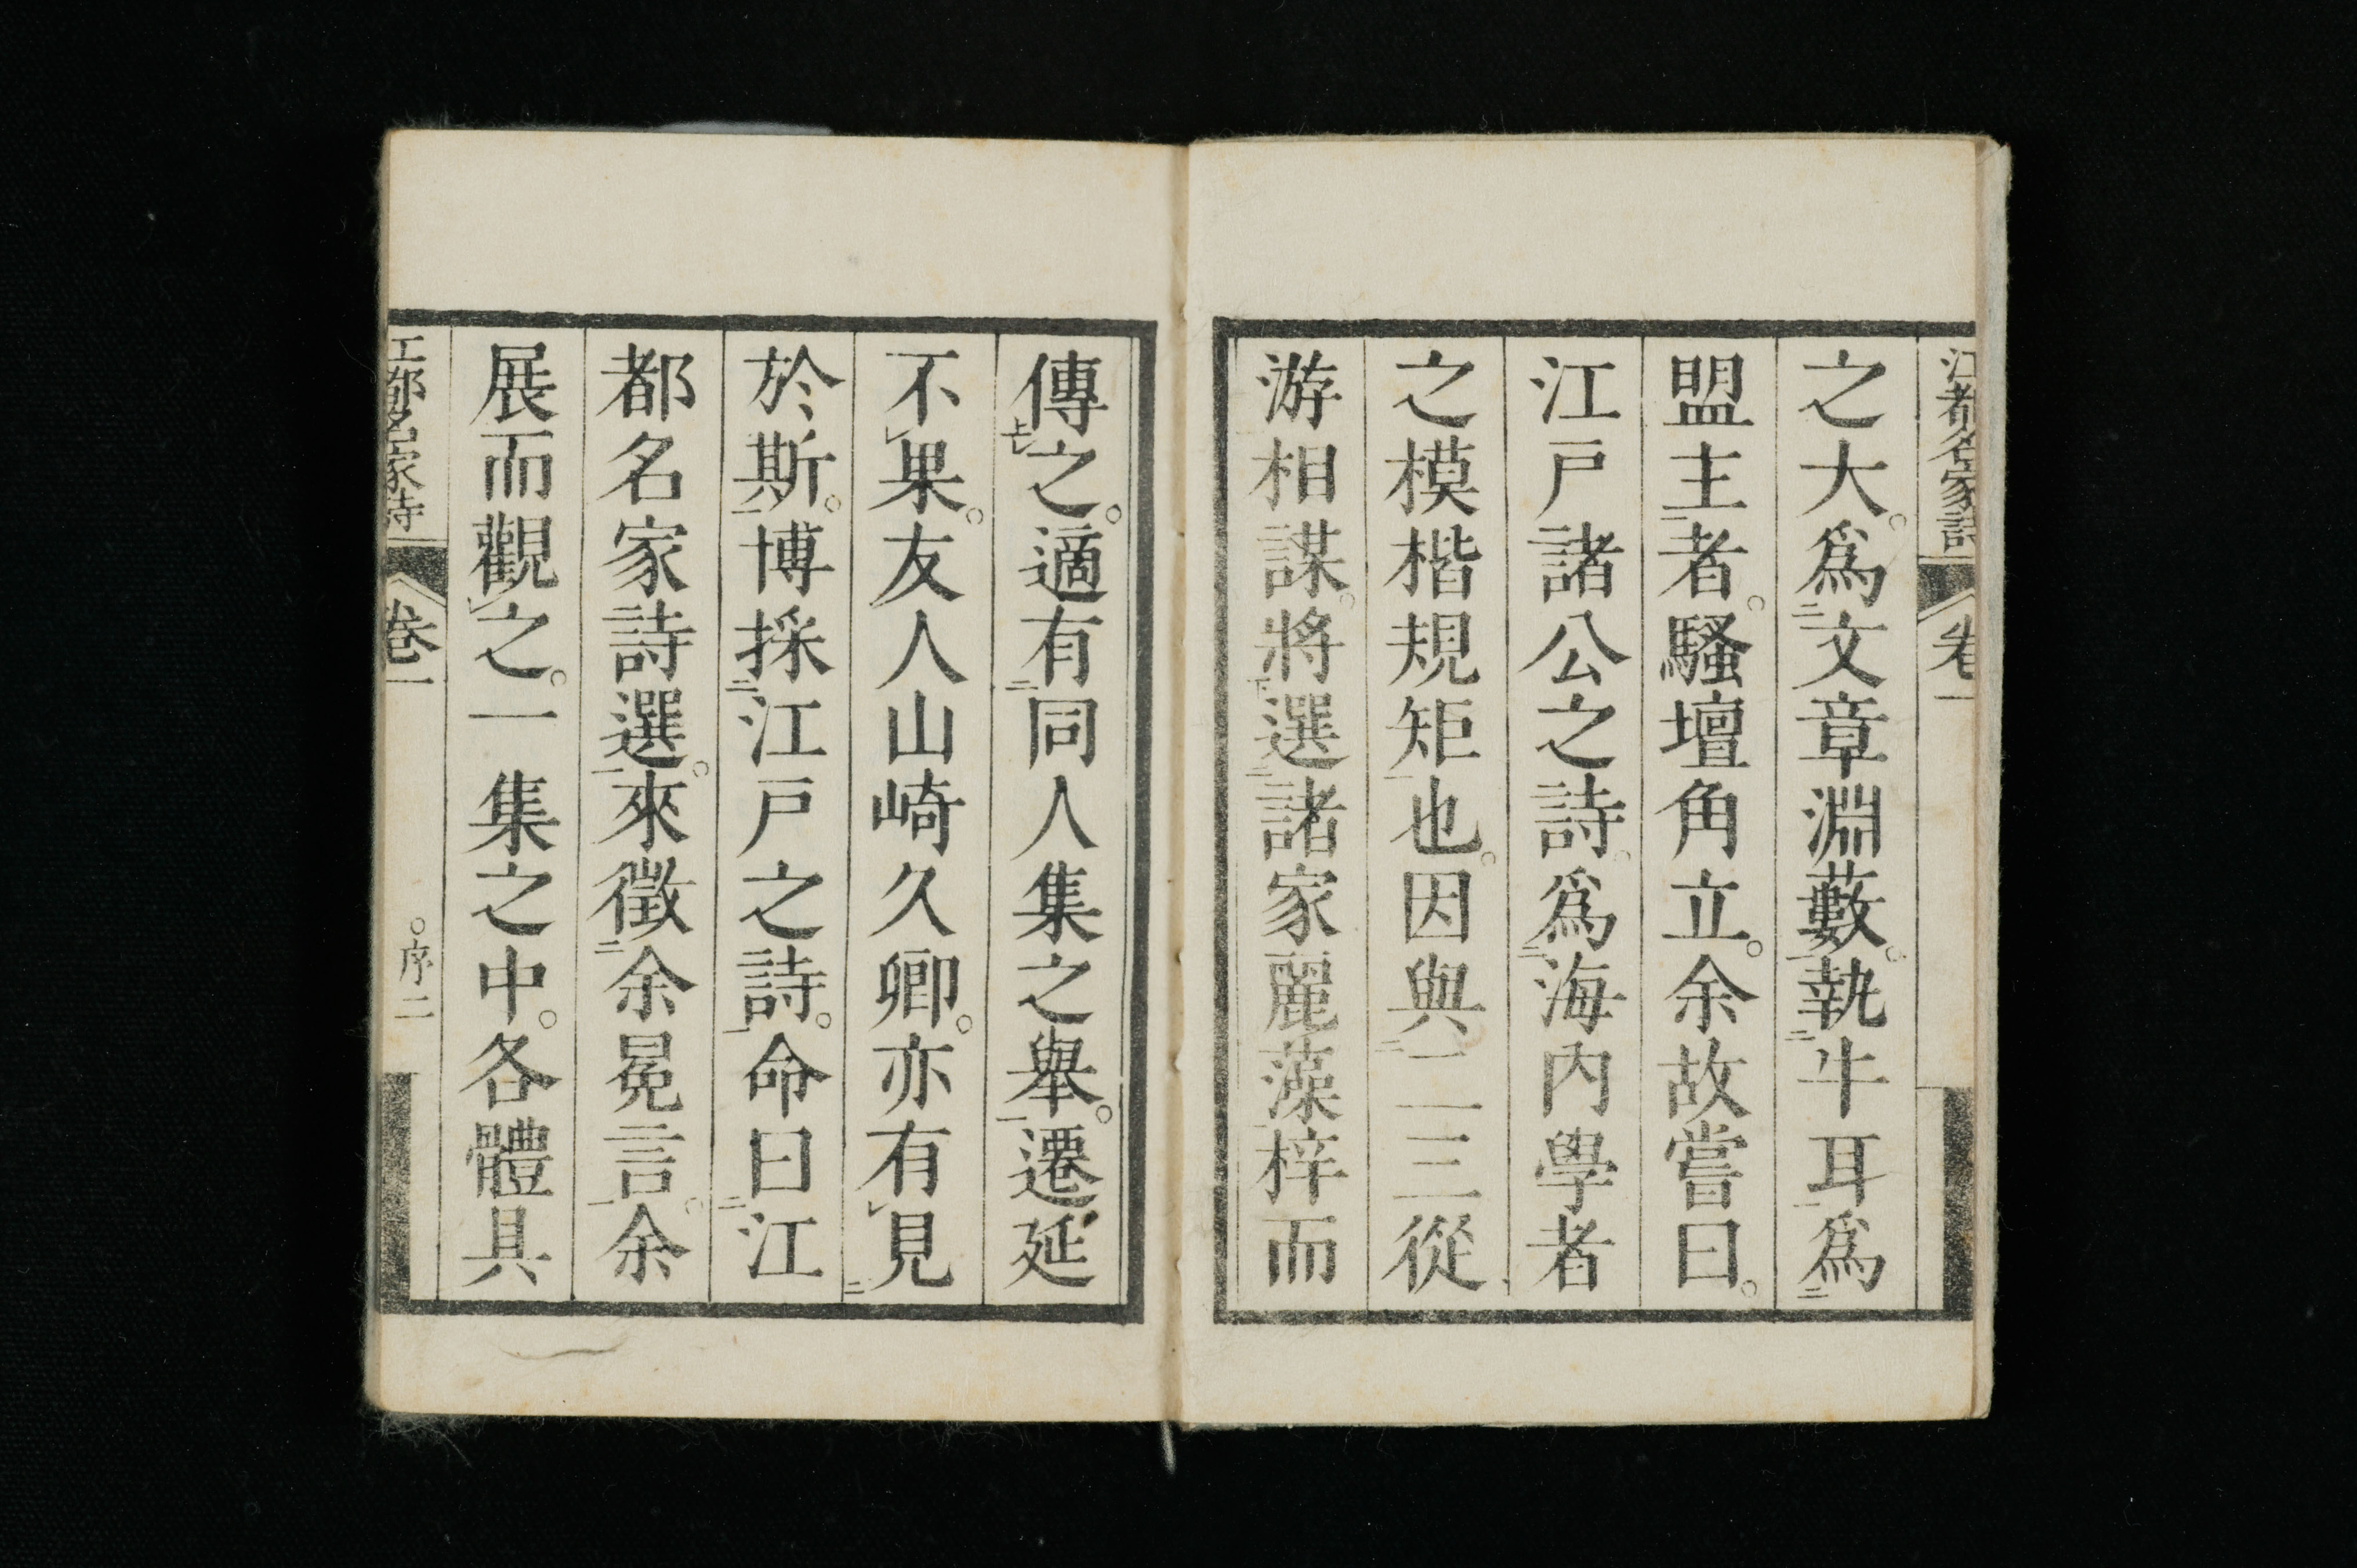 江都名家詩
卷一
之大。爲文章淵藪。執牛耳爲
盟主者。騷壇角立。余故嘗曰。
江戸諸公之詩。爲海内學者
之模楷規矩也。因與二三從
游相謀。將選諸家麗藻梓而
傳之。適有同人集之舉。遷延
不果。友人山崎久卿。亦有見
於斯。博採江戸之詩。命曰江
都名家詩選。來徵余冕言。余
展而觀之。一集之中。各體具
江都名家詩
卷一
○序二